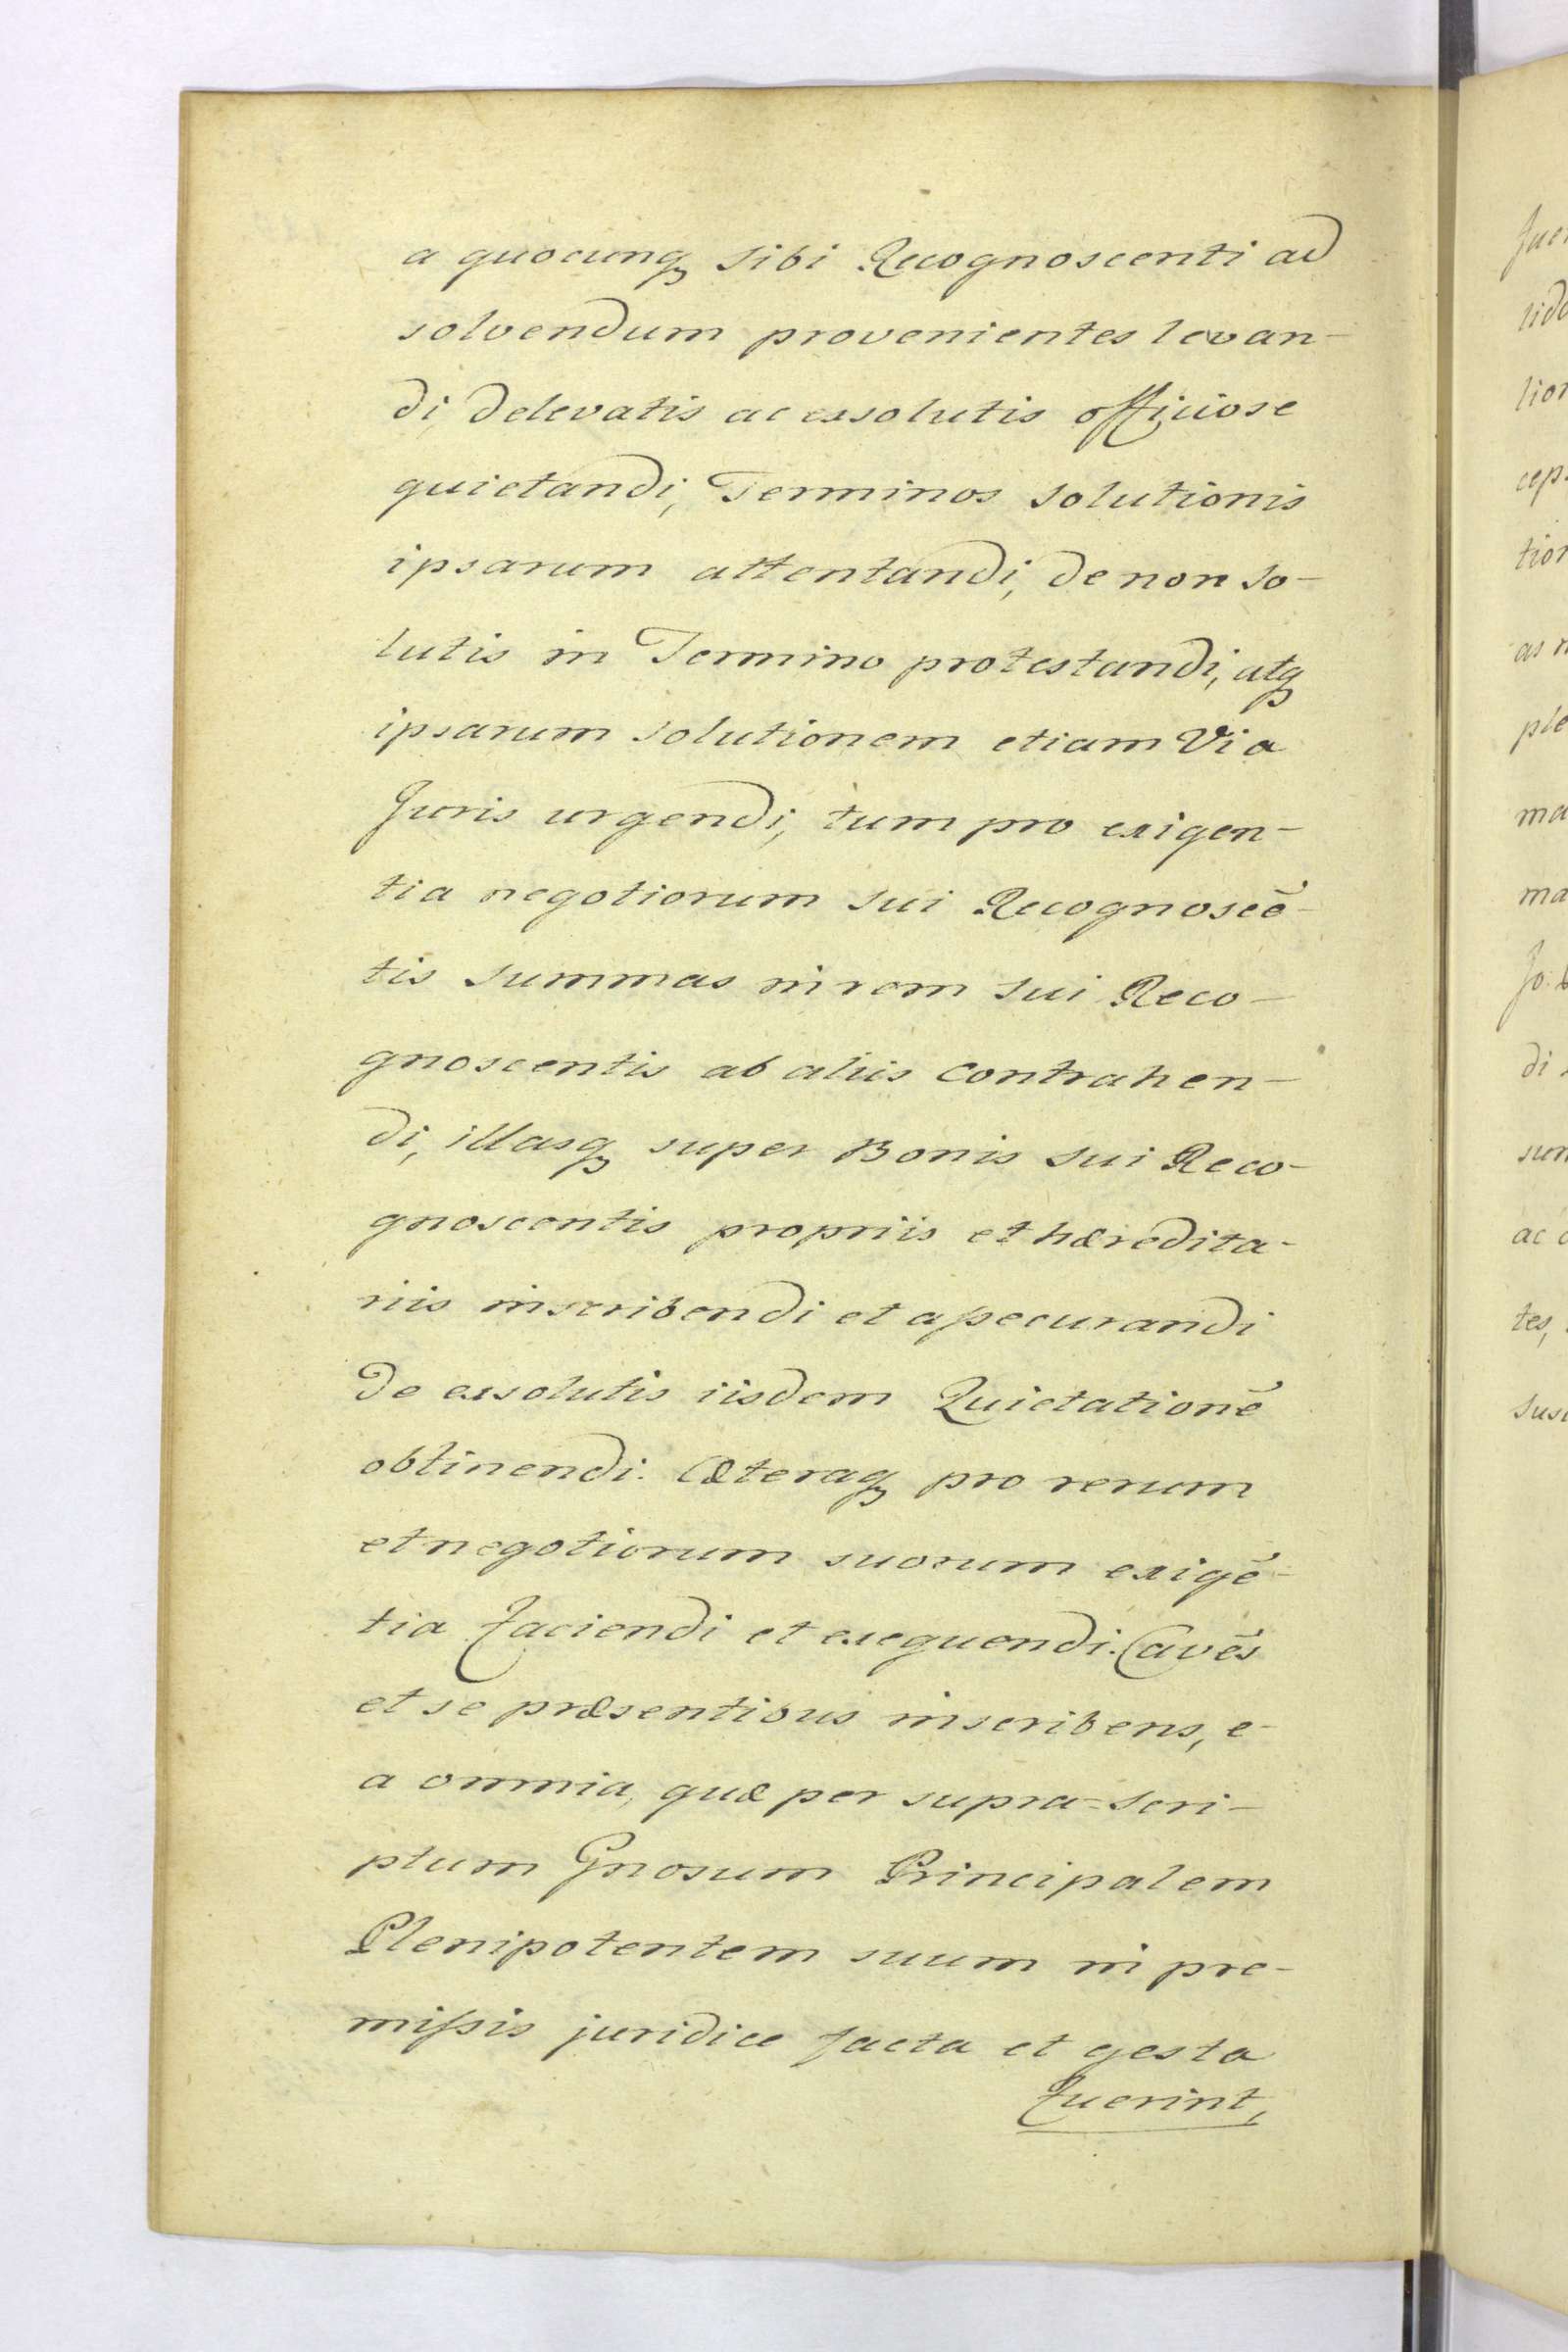 a quocunq sibi Recognoscenti ad
solvendum provenientes levan-
di, delevatis ac exsolutis officiose
quietandi, Terminos solutionis
ipsarum attentandi, de non so-
lutis in Termino protestandi, atq
ipsarum solutionem etiam Via
Juris urgendi, tum pro exigen-
tia negotiorum sui Recognoscē-
tis summas in rem sui Reco-
gnoscentis ab aliis contrahen-
di, illasq super Bonis sui Reco-
gnoscentis propriis et hæredita-
riis inscribendi et aſsecurandi
De exsolutis iisdem Quietationē
obtinendi. Cæteraq pro rerum
et negotiorum suorum exigē-
tia faciendi et exequendi. Cavēs
et se præsentibus inscribens, e-
a omnia, quæ per supra-scri-
ptum Gnosum Principalem
Plenipotentem suum in pre-
miſsis juridice facta et gesta
fuerint,